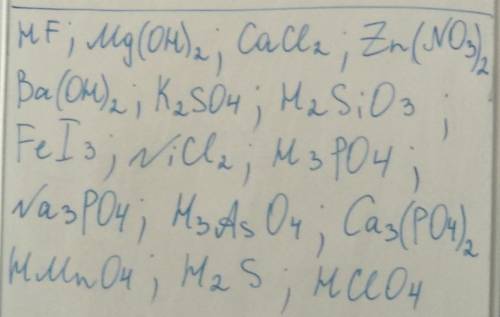 HF; Mg(OH)₂; CaCl₂; Zn(NO₃)₂
Ba(OH)₂; K₂SO₄; H₂SiO₃;
FeI₃; NiCl₂; H₃PO₄;
Na₃PO₄; H₃AsO₄; Ca₃(PO₄)₂
HMnO₄; H₂S; HClO₄